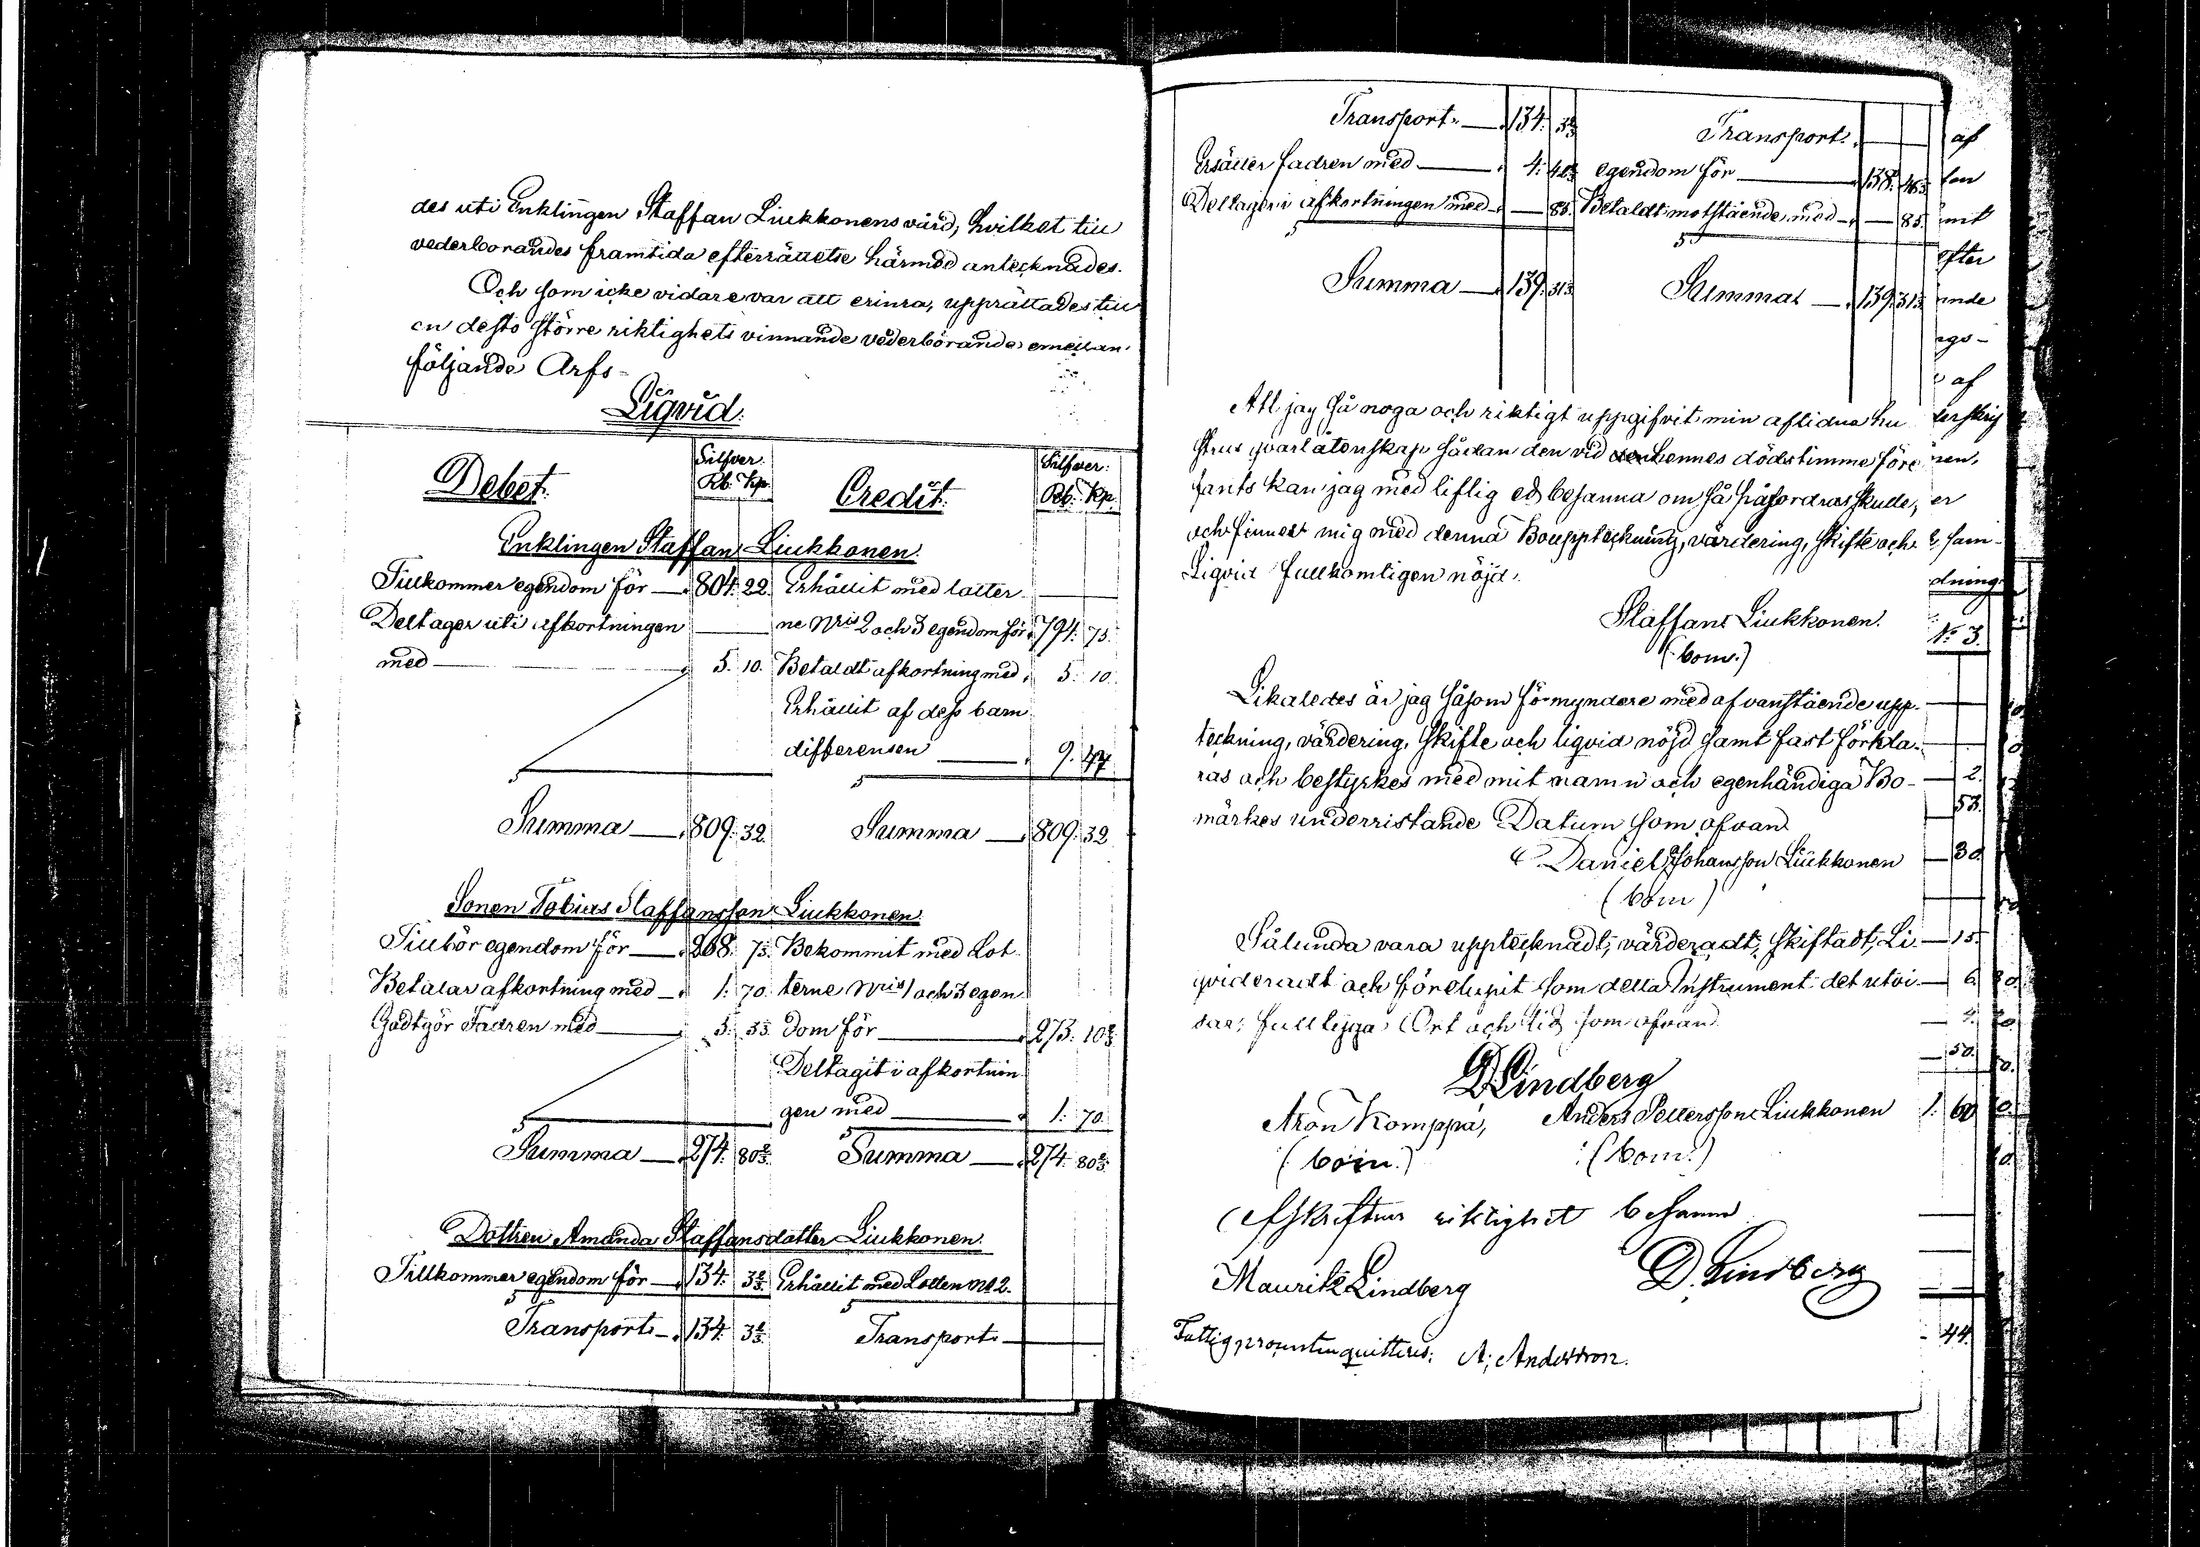 des uti Enklingen Staffan Liukkonens vård, hvilket till
vederborandes framtida efterrättelse härmed antecknades.
Och som icke vidare var att erinra, upprättades till
en desto större riktighets vinnande vederbörande emellan
följande Arfs-
Liqvid.
Debet. Silfver. Rb. Kp. Credit. Silfver. Rb. Kp.
Enklingen Staffan Liukkonen.
Tillkommer egendom för — 804. 22. Erhållit med lotter
Deltager uti afkortningen ne Nris 2 och 3 egendom för 794. 75.
med — 5. 10. Betaldt afkortning med 5. 10.
Erhållit af dess barn
differensen — 9. 47
Summa — 809. 32. Summa — 809. 32
Sonen Tobias Staffansson Liukkonen.
Tillhör egendom för — 268. 7 1/3 Bekommit med Lot
Betalar afkortning med — 1. 70. terne Nris 1 och 3 egen
Godtgör Fadren med — 5. 3 1/3 dom för — 273. 10 2/3
Deltagit i afkortnin
gen med — 1. 70.
Summa — 274. 80 2/3 Summa — 274. 80 2/3
Dottren Amanda Staffansdotter Liukkonen.
Tillkommer egendom för — 134. 3 2/3 Erhållit med Lotten No 2.
Transport — 134. 3 2/3 Transport —
Transport — 134. 3 2/3 Transport —
Ersätter fadren med — 4. 42 2/3 egendom för — 138. 46 1/3
Deltager i afkortningen med — 85. Betaldt motstående med — 85.
Summa — 139. 31 1/3 Summa — 139. 31 1/3
Att jag så noga och riktigt uppgifvit min aflidna hu
strus qvarlåtenskap sådan den vid hennes dödstimme före
fants kan jag med liflig ed besanna om så påfordras skulle,
och finner mig med denna Bouppteckning, värdering, skifte och
Liqvid fullkomligen nöjd.
Staffan Liukkonen.
(bom.)
Likaledes är jag såsom förmyndare med ofvanstående upp-
teckning, värdering, skifte och liqvid nöjd samt fast förkla-
ras och bestyrkes med mit namn och egenhändiga Bo-
märkes underristande Datum som ofvan
Daniel Johansson Liukkonen
(bom)
Sålunda vara upptecknadt, värderadt, skiftadt, Li
qvideradt och förelupit som detta Instrument det utvi
sar, fullbygga Ort och tid som ofvan
D Lindberg
Aron Komppa, Anders Pettersson Liukkonen
(bom.) (bom.)
Afskriftens riktighet besanna
Mauritz Lindberg D. Lindberg
Fattigprocenten quitteras: A; Andersson.
af
efter
af
er
dning
No 3.
2.
53.
30
15.
6.
50.
1. 60
44.